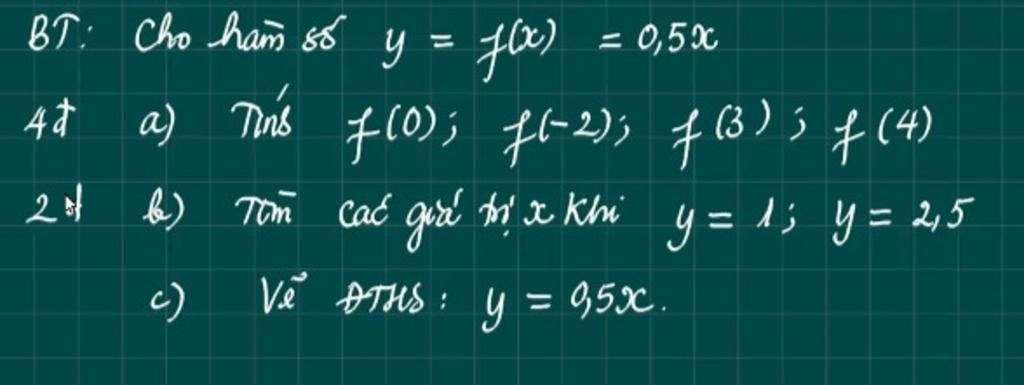 BT: Cho hàm số y = f(x) = 0,5x
4đ a) Tính f(0); f(-2); f(3); f(4)
2đ b) Tìm các giá trị x khi y = 1; y = 2,5
c) Vẽ ĐTHS: y = 0,5x.